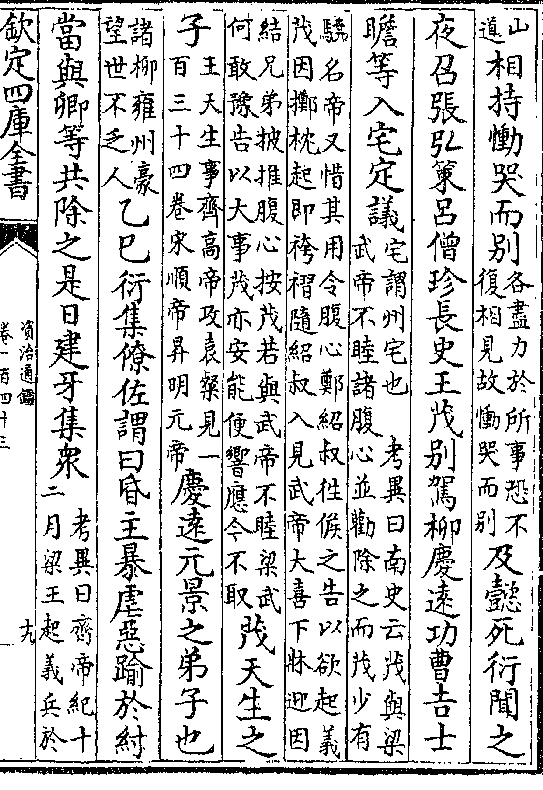 山
道
相持慟哭而别
各盡力於所事恐不
復相見故慟哭而别
及懿死衍聞之
夜召張弘策吕僧珍長史王茂别駕柳慶遠功曹吉士
瞻等入宅定議
宅謂州宅也 考異曰南史云茂與梁
武帝不睦諸腹心並勸除之而茂少有
驍名帝又惜其用令腹心鄭紹叔往候之告以欲起義
茂因擲枕起即袴褶隨紹叔入見武帝大喜下牀迎因
結兄弟披推腹心按茂若與武帝不睦梁武
何敢豫告以大事茂亦安能便響應今不取
茂天生之
子
王天生事齊高帝攻袁粲見一
百三十四卷宋順帝昇明元帝
慶遠元景之弟子也
諸柳雍州豪
望世不乏人
乙巳衍集僚佐謂曰昏主暴虐惡踰於紂
當與卿等共除之是日建牙集衆
考異曰齊帝紀十
二月梁王起義兵於
欽定四庫全書
資治通鑑
卷一百四十三
十九